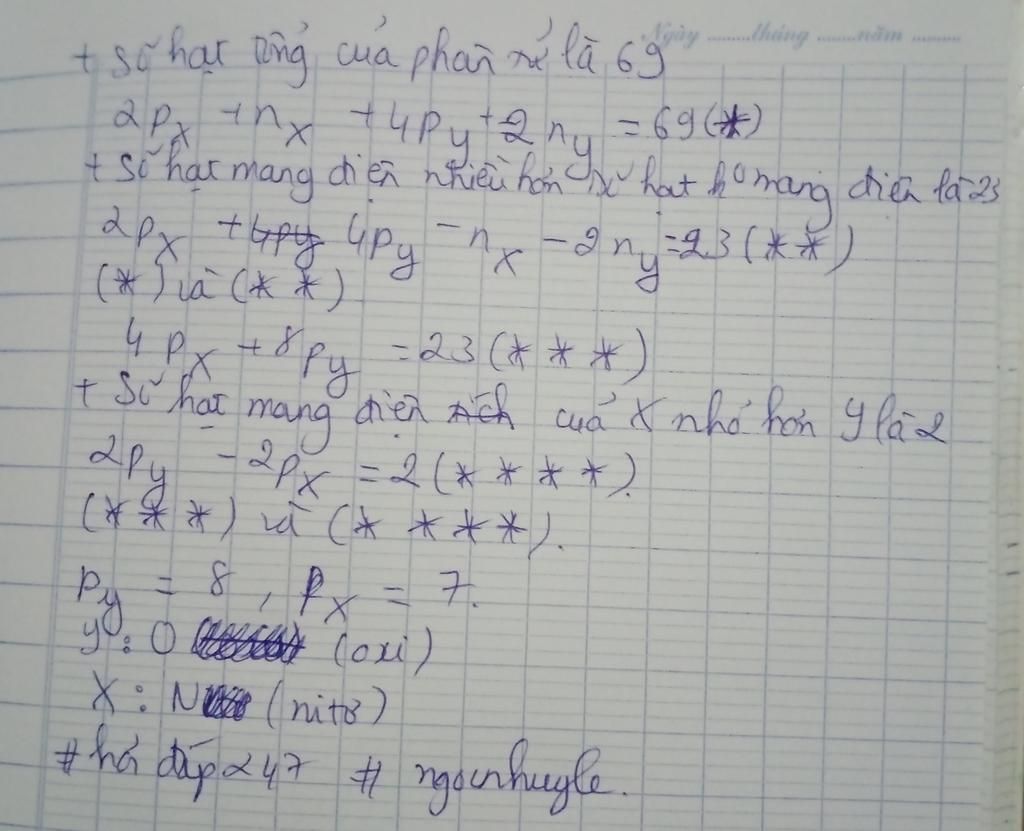 Ngày ......... tháng ....... năm .........
+ Số hạt tổng của phân tử là 69
2px + nx + 4py + 2ny = 69 (*)
+ Số hạt mang điện nhiều hơn số hạt k° mang điện là 23
2px + 4py 4py - nx - 2ny = 23 (**)
(*) và (**)
4px + 8py = 23 (***)
+ Số hạt mang điện tích của X nhỏ hơn Y là 2
2py - 2px = 2 (****).
(***) và (****).
py = 8, px = 7.
Y: O (oxi)
X: N (nitơ)
# hỏi đáp 247 # ngocnhuyle.